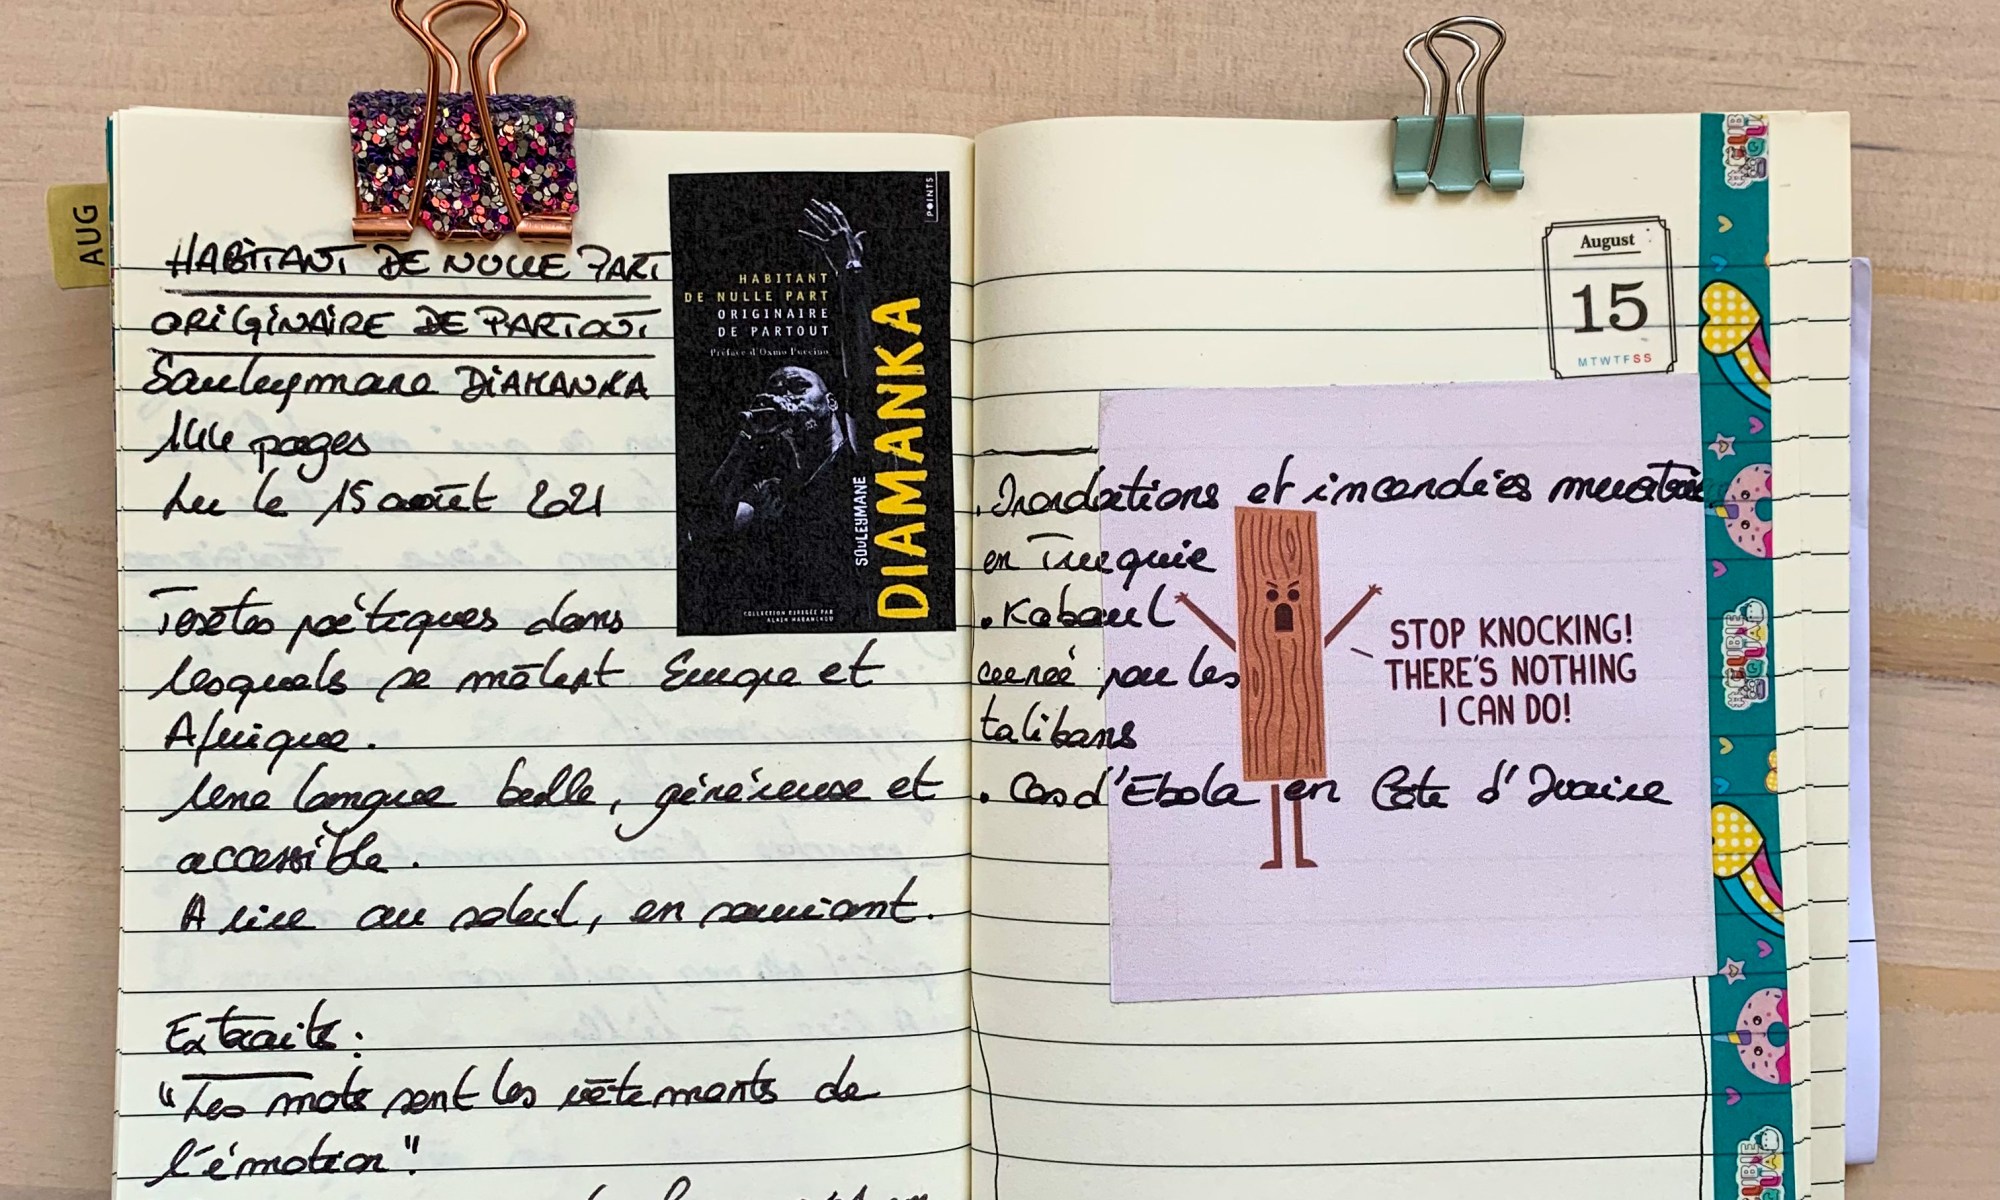 AUG
HABITANT DE NULLE PART
ORIGINAIRE DE PARTOUT
Souleymane DIAMANKA
144 pages
Lu le 15 août 2021
Textes poétiques dans
lesquels se mêlent Europe et
Afrique.
Une langue belle, généreuse et
accessible.
A lire au soleil, en souriant.
Extraits :
"Les mots sont les vêtements de
l'émotion"
POINTS
HABITANT
DE NULLE PART
ORIGINAIRE
DE PARTOUT
Préface d'Oxmo Puccino
SOULEYMANE
DIAMANKA
COLLECTION DIRIGÉE PAR
ALAIN MABANCKOU
August
15
MTWTFSS
. Inondations et incendies meurtriers
en Turquie
. Kaboul
cerné par les
talibans
. Cas d'Ebola en Côte d'Ivoire
STOP KNOCKING!
THERE'S NOTHING
I CAN DO!